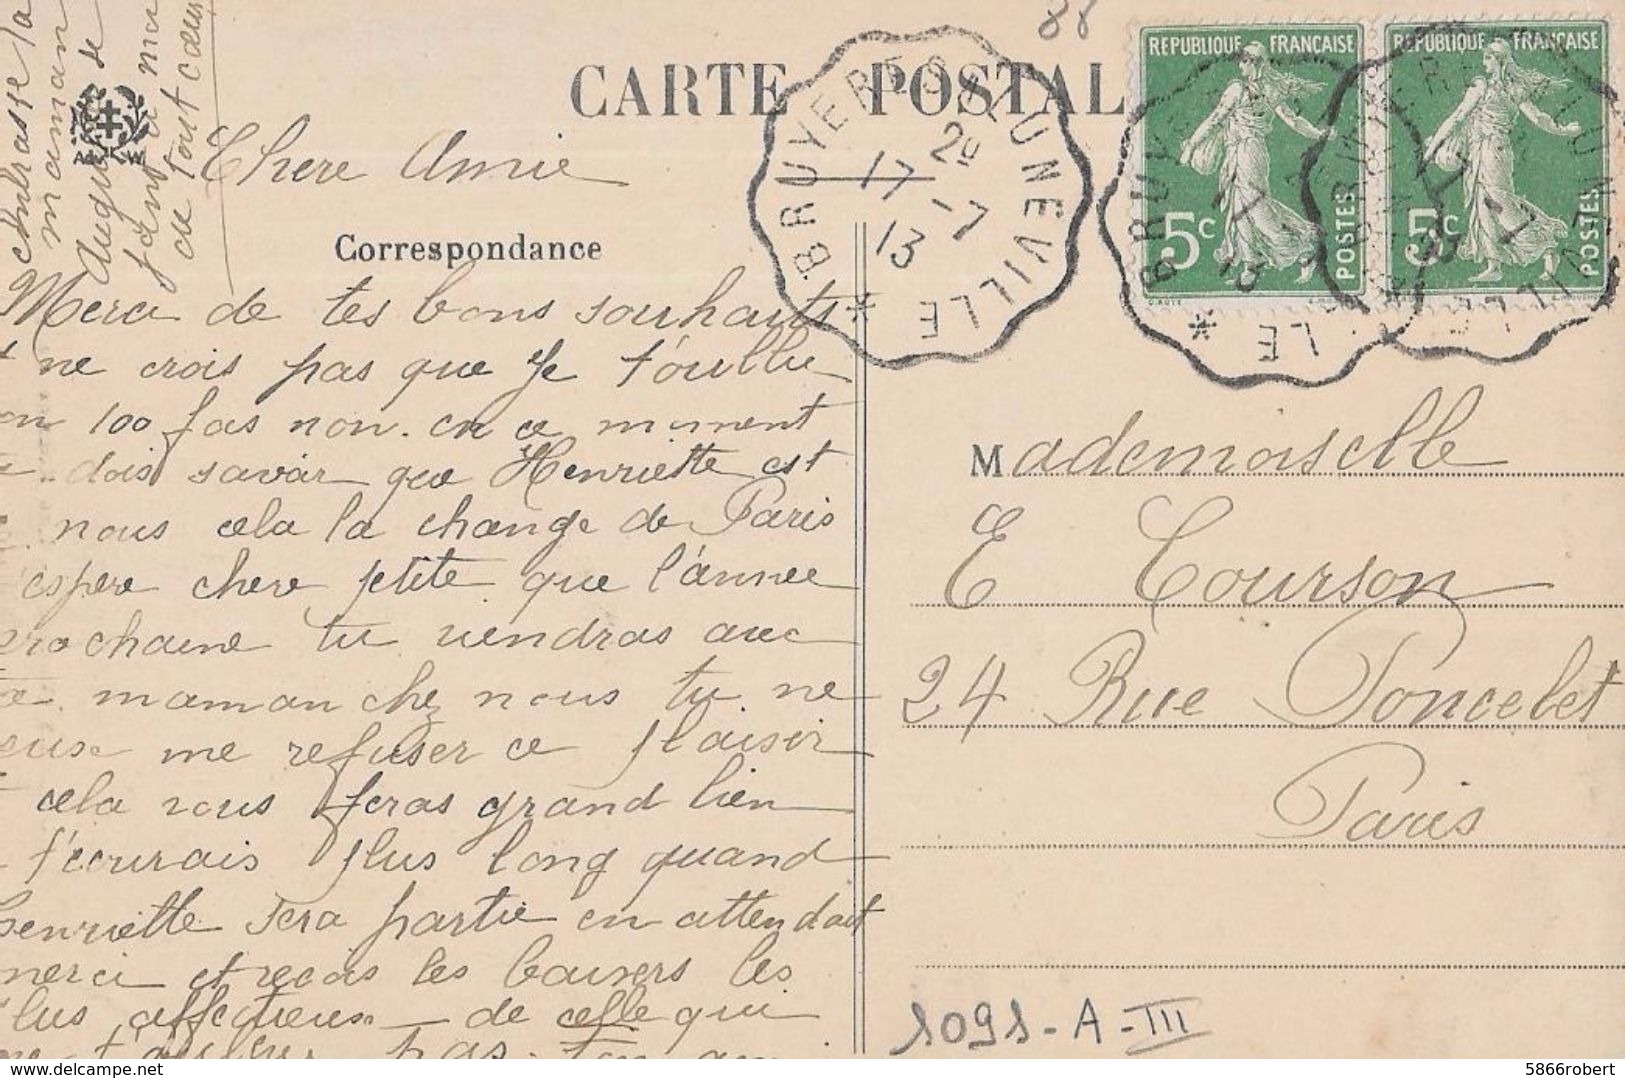 88
CARTE POSTALE
REPUBLIQUE FRANÇAISE
5c
POSTES
REPUBLIQUE FRANÇAISE
5c
POSTES
BRUYERES A LUNEVILLE *
2º
17-7
13
Correspondance
Chere Amie
Merci de tes bons souhaits
ne crois pas que je t'oullie
100 fois non. en ce moment
dois savoir que Henriette est
nous cela la change de Paris
espere chere petite que l'annee
prochaine tu viendras avec
maman chez nous tu ne
me refuser ce plaisir
cela nous feras grand bien
t'ecurais plus long quand
henriette sera partie en attendant
merci et reçois les baisers les
plus affectueux de celle qui
pas. ton
embrasse ta
maman
de tout cœur
Mademoiselle
E Courson
24 Rue Poncelet
Paris
1091-A-III
delcampe.net
5866robert